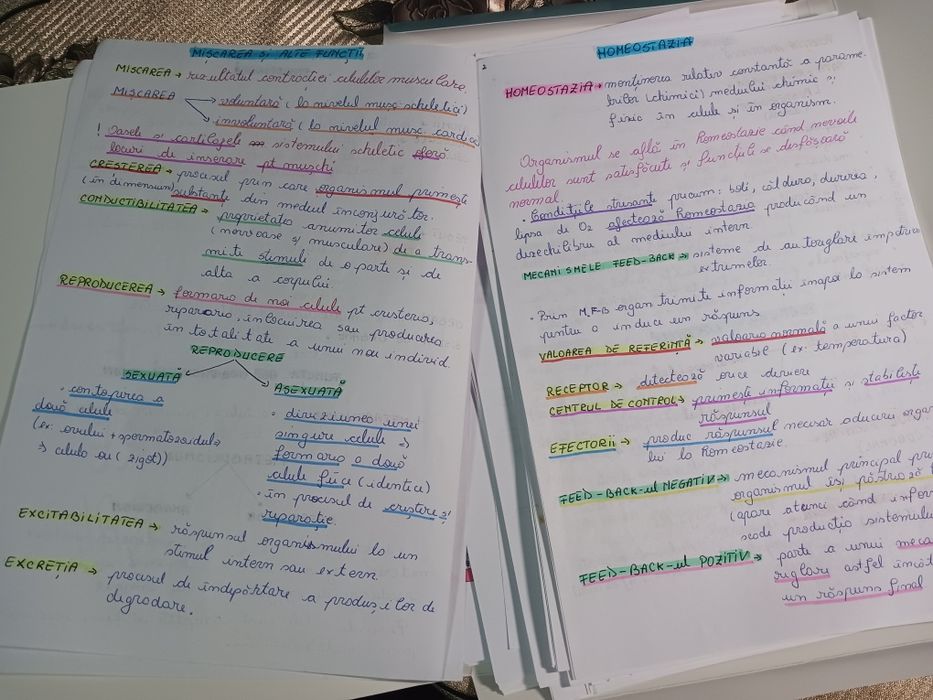 MIȘCAREA ȘI ALTE FUNCȚII
MIȘCAREA → rezultatul contracției celulelor musculare.
MIȘCAREA → voluntară (la nivelul musc. scheletici)
→ involuntară (la nivelul musc. cardiac
! Oasele și cartilagele sistemului scheletic oferă
locuri de inserare pt mușchi
CREȘTEREA → procesul prin care organismul primește
(în dimensiuni) substanțe din mediul înconjurător.
CONDUCTIBILITATEA → proprietatea anumitor celule
(nervoase și musculare) de a trans-
mite stimuli de o parte și de
alta a corpului.
REPRODUCEREA → formarea de noi celule pt creșterea,
repararea, înlocuirea sau producerea
în totalitate a unui nou individ.
REPRODUCERE
SEXUATĂ
ASEXUATĂ
• contopirea a
două celule
(ex: ovulul + spermatozoidul
⇒ celula ou (zigot))
• diviziunea unei
singure celule ⇒
formarea a două
celule fiice (identice)
• în procesul de creștere și
reparație.
EXCITABILITATEA → răspunsul organismului la un
stimul intern sau extern.
EXCREȚIA → procesul de îndepărtare a produșilor de
degradare.
2
HOMEOSTAZIA
HOMEOSTAZIA → menținerea relativ constantă a parame-
trilor (chimici) mediului chimic și
fizic în celule și în organism.
Organismul se află în homeostazie când nevoile
celulelor sunt satisfăcute și funcțiile se desfășoară
normal.
• Condițiile stresante precum: boli, căldura, durerea,
lipsa de O2 afectează homeostazia producând un
dezechilibru al mediului intern.
MECANISMELE FEED-BACK → sisteme de autoreglare împotriva
extremelor.
• Prin M.F-B organ. trimite informații înapoi la sistem
pentru a induce un răspuns
VALOAREA DE REFERINȚĂ → valoarea normală a unui factor
variabil (ex: temperatura)
RECEPTOR → detectează orice deviere
CENTRUL DE CONTROL → primește informații și stabilește
răspunsul
EFECTORII → produc răspunsul necesar aducerii organ
lui la homeostazie.
FEED-BACK-ul NEGATIV → mecanismul principal pri
organismul își păstrează
(apare atunci când infor
scade producția sistemului
FEED-BACK-ul POZITIV → parte a unui meca
reglare astfel încât
un răspuns final